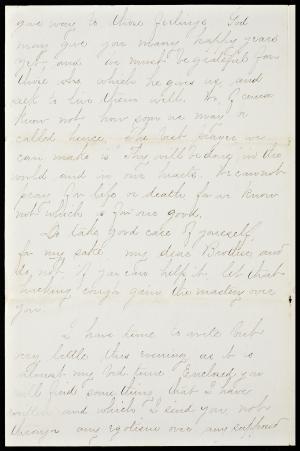 give way to those feelings God
may give you many happy years
yet and we must be grateful for
those which he gives us and
seek to live them well. We of course
know not how soon we may be
called hence. The best prayer we
can make is "Thy will be done" in the
world and in our hearts. We cannot
pray for life or death for we know
not which is for our good.
Do take good care of yourself
for my sake my dear Brother and
do not if you can help it let that
hacking cough gain the mastery over
you.
I have time to write but
very little this evening as it is
almost my bed time Enclosed you
will find something that I have
written and which I send you not
through any egotism over any support